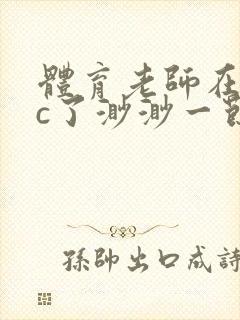 體育老師在
c了渺渺一節
孫帥出口成詩